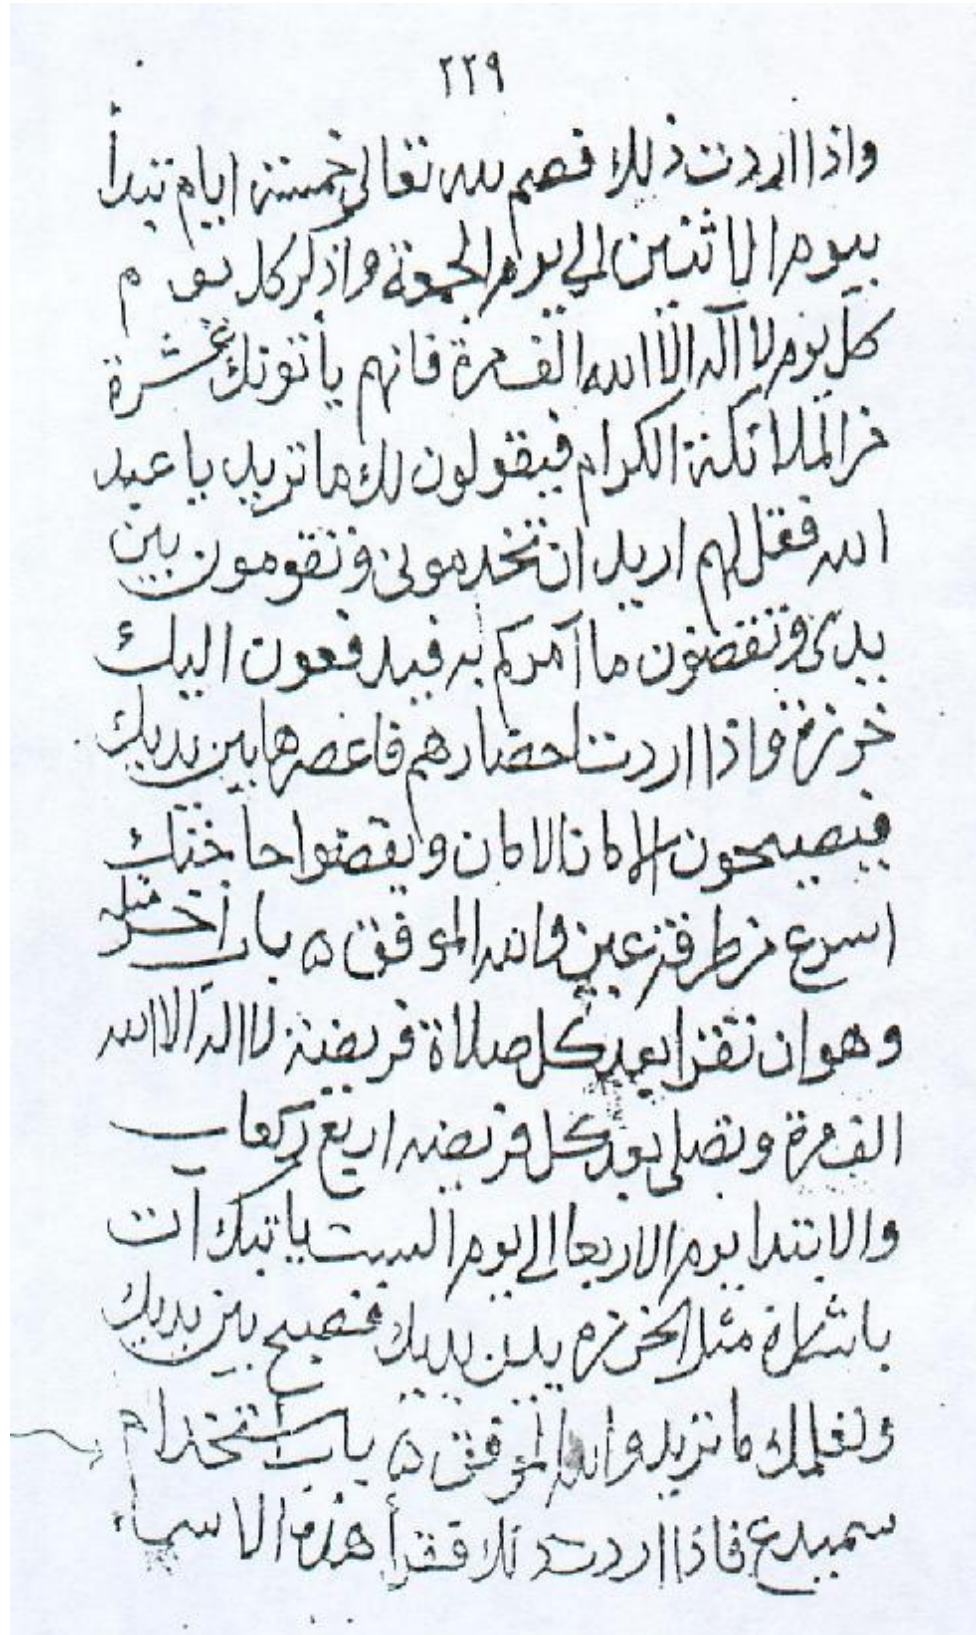 ٢٢٩
واذا اردت ذلك فصم لله تعالى خمسة ايام تبدأ
بيوم الاثنين الي يوم الجمعة واذكر كل يوم
كل يوم لا آله الا الله الف مرة فانهم يأتونك عشرة
من الملائكة الكرام فيقولون لك ما تريد يا عبد
الله فقل لهم اريد ان تخدموني وتقومون بين
يدي وتقضون ما آمركم به فيدفعون اليك
خرزة واذا اردت احضارهم فاعصرها بين يديك
فيصيحون الامان الامان ويقضوا حاجتك
اسرع من طرفة عين والله الموفق ٥ باب آخر مثله
وهو ان تقرا بعد كل صلاة فريضة لا اله الا الله
الف مرة وتصلي بعد كل فريضه اربع ركعات
والابتدا يوم الاربعا الى يوم السبت ياتيك ات
مثل الخرزه بين يديك فتصيح بين يديك
ما تريد والله الموفق ٥ باب استخدام
سميدع فاذا اردت ذلك فقرأ هذه الاسماء